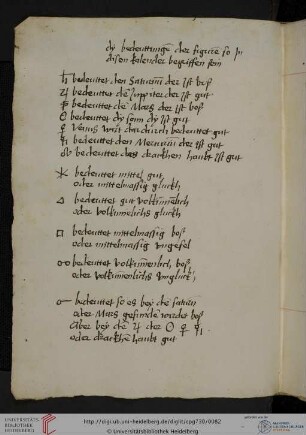 dy bedeuttungen der figuren so in
disem kalender begriffen sein
♄ bedeuttet den Saturnum der ist boß
♃ bedeuttet de Juppiter der ist gut
♂ bedeuttet de Mars der ist boß
☉ bedeuttet dy sonn dy ist gut
♀ Venus wirt dardurch bedeuttet gut
☿ bedeuttet den Mercurium der ist gut
☊ bedeuttet des drackhen haubt ist gut
⚹ bedeuttet mittel gut
oder mittelmassig gluckh
△ bedeuttet gut volkumelich
oder volkumelichs gluckh
□ bedeuttet mittelmassig boß
oder mittelmassig ungefel
☍ bedeuttet volkumenlich boß
oder volkumenlichs ungluckh
☌ bedeuttet so es bey de saturn
oder Mars gefunde wirdt boß
Aber bey de ♃ der ☉ ♀ ☿
oder drackhen haubt gut
UNIVERSITÄTS-
BIBLIOTHEK
HEIDELBERG
http://digi.ub.uni-heidelberg.de/diglit/cpg730/0082
© Universitätsbibliothek Heidelberg